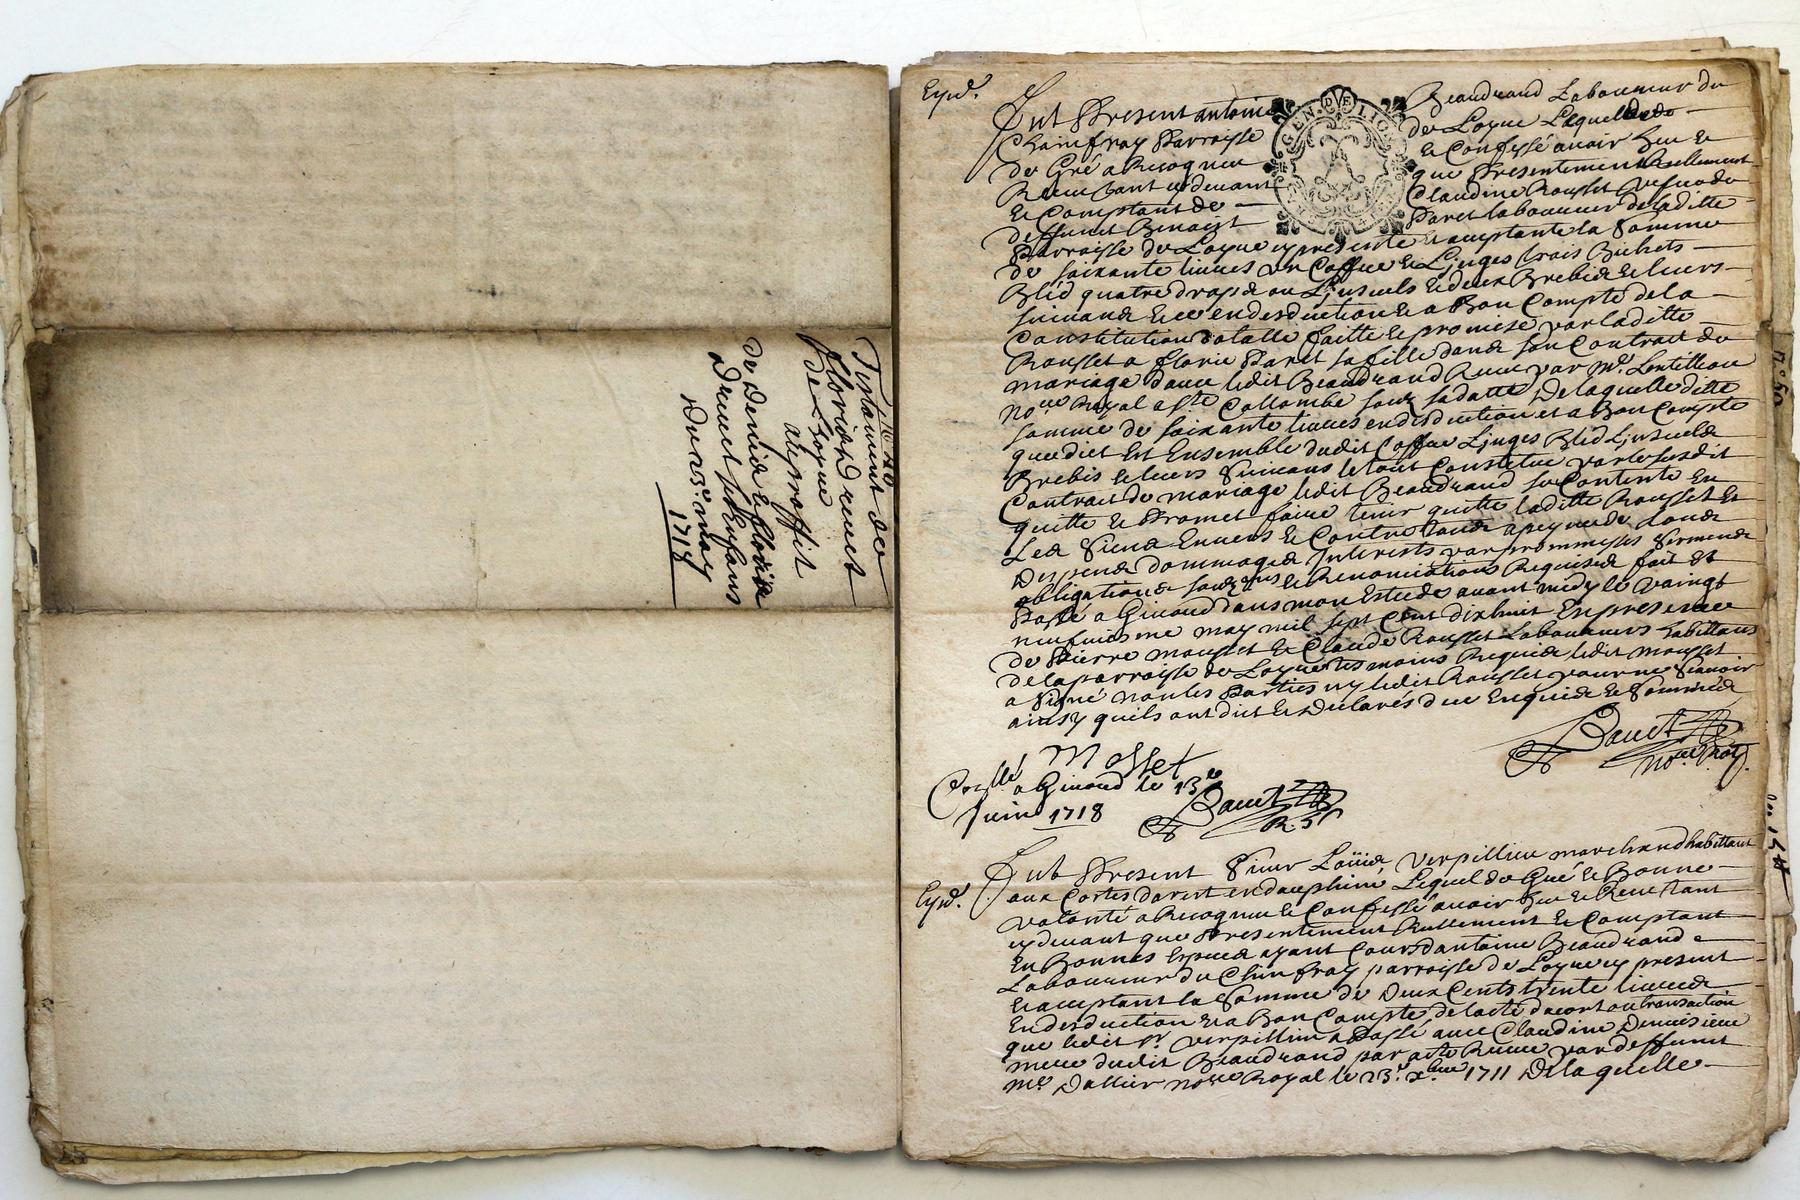 Testament de
Floris Drevet
de Loyue
au proffit
de Denis & Floris
Drevet ses Enfans
Du 23e. may
1718
Expd.
GEN. DE LION
Fut Present antoine Beaudrand Laboureur du
Chainfray Parroisse de Loyue Lequel de
de Gré a Recogneu & Confessé avoir Heu &
Receu tant cydevant que Presentement Reellement
& Comptant de Claudine Rousset vefve de
deffunct Benoist Paret laboureur de laditte
Parroisse de Loyue cy presente & acceptante la Somme
de soixante livres un Coffre & Linges trois Bichets
Bléd quatre draps ou Linsuels & deux Brebis & leurs
suivans & ce en desduction & a Bon Compte de la
Constitution dotalle faitte & promise par laditte
Rousset a Florie Paret sa fille dans son Contrat de
mariage avec ledit Beaudrand Receu par Me. Lentillon
nore Royal a Ste Collombe sous sa datte De laquelle ditte
somme de soixante livres en desduction et a Bon Compte
que dict est Ensemble dudit Coffre Linges Bléd Linsuels
Brebis & leurs Suivans le tout Constitué par le susdit
Contrat de mariage ledit Beaudrand se Contente En
quitte & Promet faire tenir quitte laditte Rousset &
Les Siens Envers & Contre tous a peyne de tous
Despens dommages Interests par prommesses Serments
obligations sous & Renonciations Requises fait et
Passé a Givord dans mon Estude avant midy le vaingt
neufviesme may mil sept Cent dixhuit En presence
de Pierre mousset & Claude Rousset Laboureurs habittans
de la parroisse de Loyue tesmoins Requis ledit mousset
a Signé non les Parties ny ledit Rousset pour ne Scavoir
ainsy quils ont dict & Declarés de ce Enquis & Sommés
Mosset
Bonet
nore Royl.
Conllé a Givord le 13e
Juin 1718
Bonet
Expd.
Fut Present Sieur Loüis Verpillieu marchand habittant
aux Cortes darest en dauphiné Lequel de Gré & Bonne
Volonté a Recogneu & Confessé avoir Heu & Receu tant
cydevant que Presentement Reellement & Comptant
En Bonnes Especes ayant Cours d antoine Beaudrand
Laboureur du Chinfray parroisse de Loyue cy present
& acceptant la Somme de Deux Cents trente livres
En desduction & a Bon Compte de lacte dacort ou transaction
que ledit Sr. Verpillieu a Passé avec Claudine
mere dudit Beaudrand par acte Receu par deffunct
Me Dallier nore Royal le 23e. xbre 1711 De laquelle